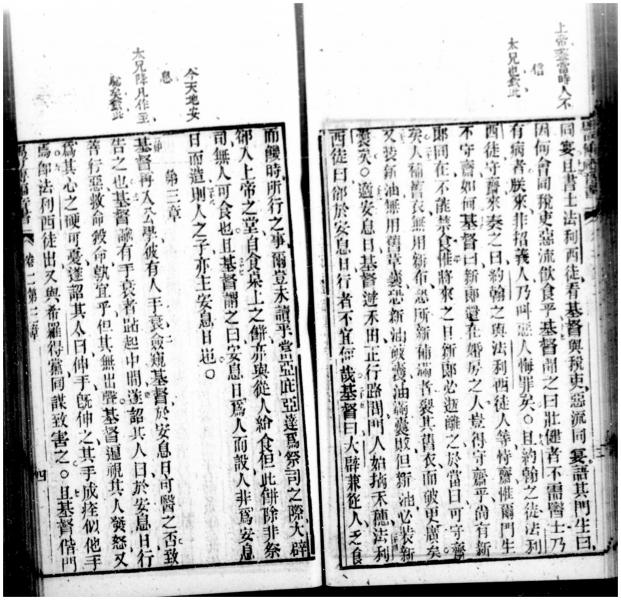 上帝當時人不
信
太兄也欽此
同宴且書士法利西徒看基督與稅吏惡流同宴語其門生曰
因何會同稅吏惡流飲食乎基督聞之曰壯健者不需醫士乃
有病者朕來非招義人乃叫惡人悔罪矣○且約翰之徒法利
西徒守齋來奏之曰約翰之與法利西徒人等恃齋惟爾門生
不守齋如何基督曰新郎還在婚房之人豈得守齋乎尚有新
郎同在不能禁食惟將來之日新郎必逝離之於當日可守齋
矣人補舊衣無用新布恐所新補滿者裂其舊衣而破更廣矣
又裝新油無用舊草囊恐新油破囊油漏囊敗但新油必裝新
囊矣○適安息日基督進禾田正行路間門人始摘禾穗法利
西徒曰卻於安息日行者不宜何哉基督曰大辟兼從人乏食
而餓時所行之事爾豈未讀乎當亞庇亞達為祭司之際大辟
卻入上帝之堂自食桌上之餅亦與從人給食但此餅除非祭
司無人可食也且基督謂之曰安息日為人而設人非為安息
日而造則人之子亦主安息日也○
今天地安
息
第三章
太兄降凡作主
欽此
基督再入公學彼有人手衰僉窺基督於安息日可醫之否致
告之也基督諭有手衰者站起中間遂詔其人曰於安息日行
善行惡救命殺命孰宜乎但其無出聲基督遍視其人發怒又
為其心之硬可憂遂詔其人曰伸手既伸之其手成痊似他手
焉卻法利西徒出又與希羅得黨同謀致害之○且基督偕門
卷二第三章
四